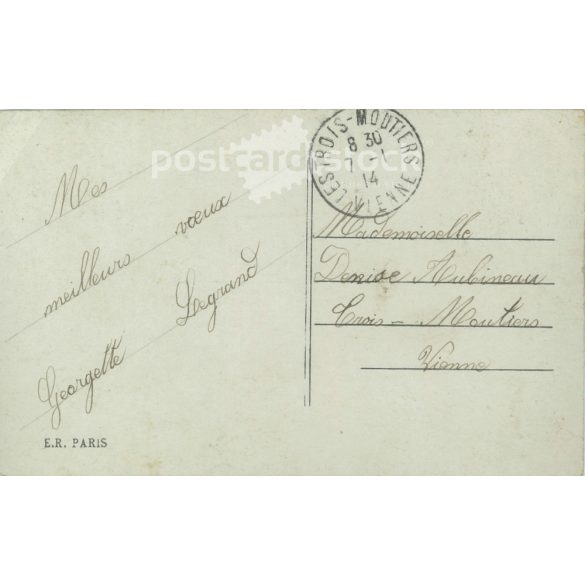 postcardstock
LES TROIS-MOUTIERS
8 30
1 - 1
14
VIENNE
Mes
meilleurs vœux
Georgette Legrand
Mademoiselle
Denise Aubineau
Trois - Moutiers
Vienne
E.R. PARIS